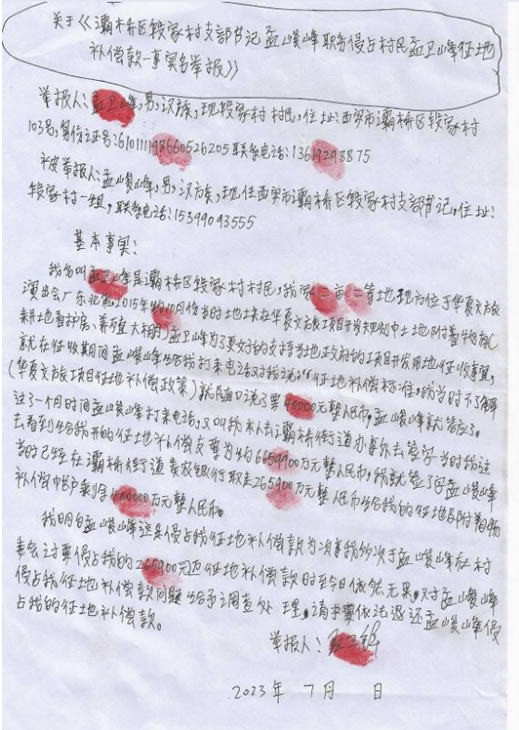 关于《灞桥区段家村支部书记孟峻峰职务侵占村民孟卫峰征地
补偿款一事实名举报》
举报人:孟卫峰,男,汉族,现段家村村民,住址:西安市灞桥区段家村
103号,身份证号:6101111 联系电话:136 8875
被举报人:孟峻峰,男,汉族,现任西安市灞桥区段家村支部书记,住址:
段家村一组,联系电话:15399093555
基本事实:
我名叫孟卫峰是灞桥区段家村村民,我家 二等地现为位于华夏文旅
演出会广东北 2015年 10月份当时地块在华夏文旅项目开发规划中土地附着物
耕地看护房、养殖大棚,孟卫峰为了更好的支持当地政府的项目开发用地征收事宜,
就在征收期间孟峻峰给我打来电话对我说:“征地补偿标准,我当时不了解
(华夏文旅项目征地补偿政策)就随口说了要 0000元整人民币,孟峻峰就答应了。
过了一个月时间孟峻峰打来电话,又叫我本人去灞桥街道办事处去签字当时我过
去看到给我开的征地补偿支票为 万元整人民币,我就签了字孟峻峰
当时已经在灞桥街道农业银行取走265900万元整人民币给我的征地附着物
补偿帐户剩余 0000万元整人民币。
我明白孟峻峰这是侵占我征地补偿款为次事我多次于孟峻峰在村
委会讨要侵占我的265900元正征地补偿款时至今日依然无果,对于孟峻峰
侵占我征地补偿款问题给予调查处理,请求要依法退还孟峻峰侵
占我的征地补偿款。
举报人:
2023年 7月 日